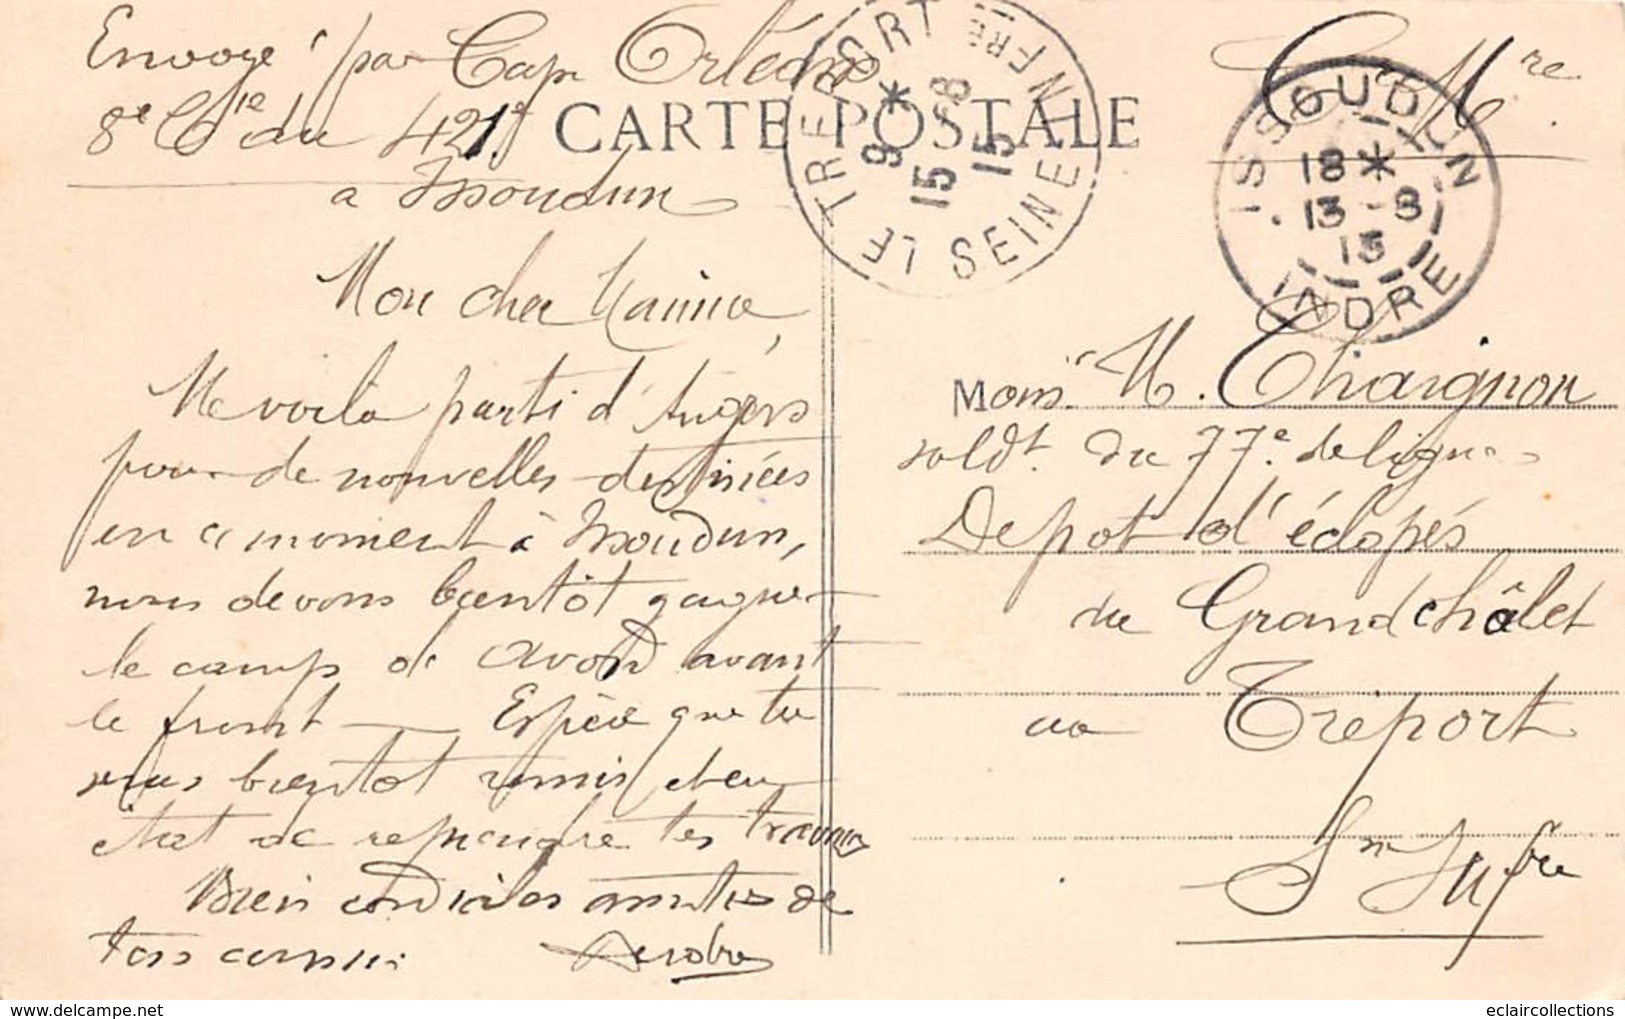 Envoyé par Cap Orléans
8e Cie du 421e
à Issoudun
CARTE POSTALE
LE TREPORT
SEINE INFRE
9 *
15 -8
15
Cce Mre
ISSOUDUN
INDRE
18 *
13 -8
15
Mon cher Maurice,
Me voilà parti d'Angers
pour de nouvelles destinées
en ce moment à Issoudun,
nous devons bientôt gagner
le camp d' Avord avant
le front — Espère que tu
seras bientôt remis et en
état de reprendre tes travaux
Bien cordiales amitiés de
ton cousin
Mons. M. Chaignon
soldt. du 77e. de ligne
Depot d'éclopés
du Grand châlet
au Tréport
Sne Infre
eclaircollections